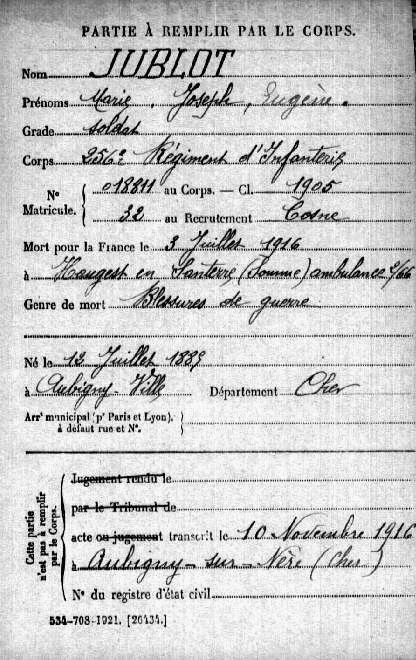 PARTIE À REMPLIR PAR LE CORPS.
Nom JUBLOT
Prénoms Marie, Joseph, Eugène.
Grade soldat
Corps 256e Régiment d'Infanterie
No Matricule. 018811 au Corps. — Cl. 1905
32 au Recrutement Cosne
Mort pour la France le 3 Juillet 1916
à Hangest en Santerre (Somme) ambulance
Genre de mort Blessures de guerre
Né le 12 Juillet
à Aubigny-Ville Département Cher
Arrt municipal (pr Paris et Lyon),
à défaut rue et No.
Cette partie n'est pas à remplir par le Corps.
Jugement rendu le
par le Tribunal de
acte ou jugement transcrit le 10 Novembre 1916
à Aubigny-sur-Nère (Cher)
No du registre d'état civil
534-708-1921. [26434.]